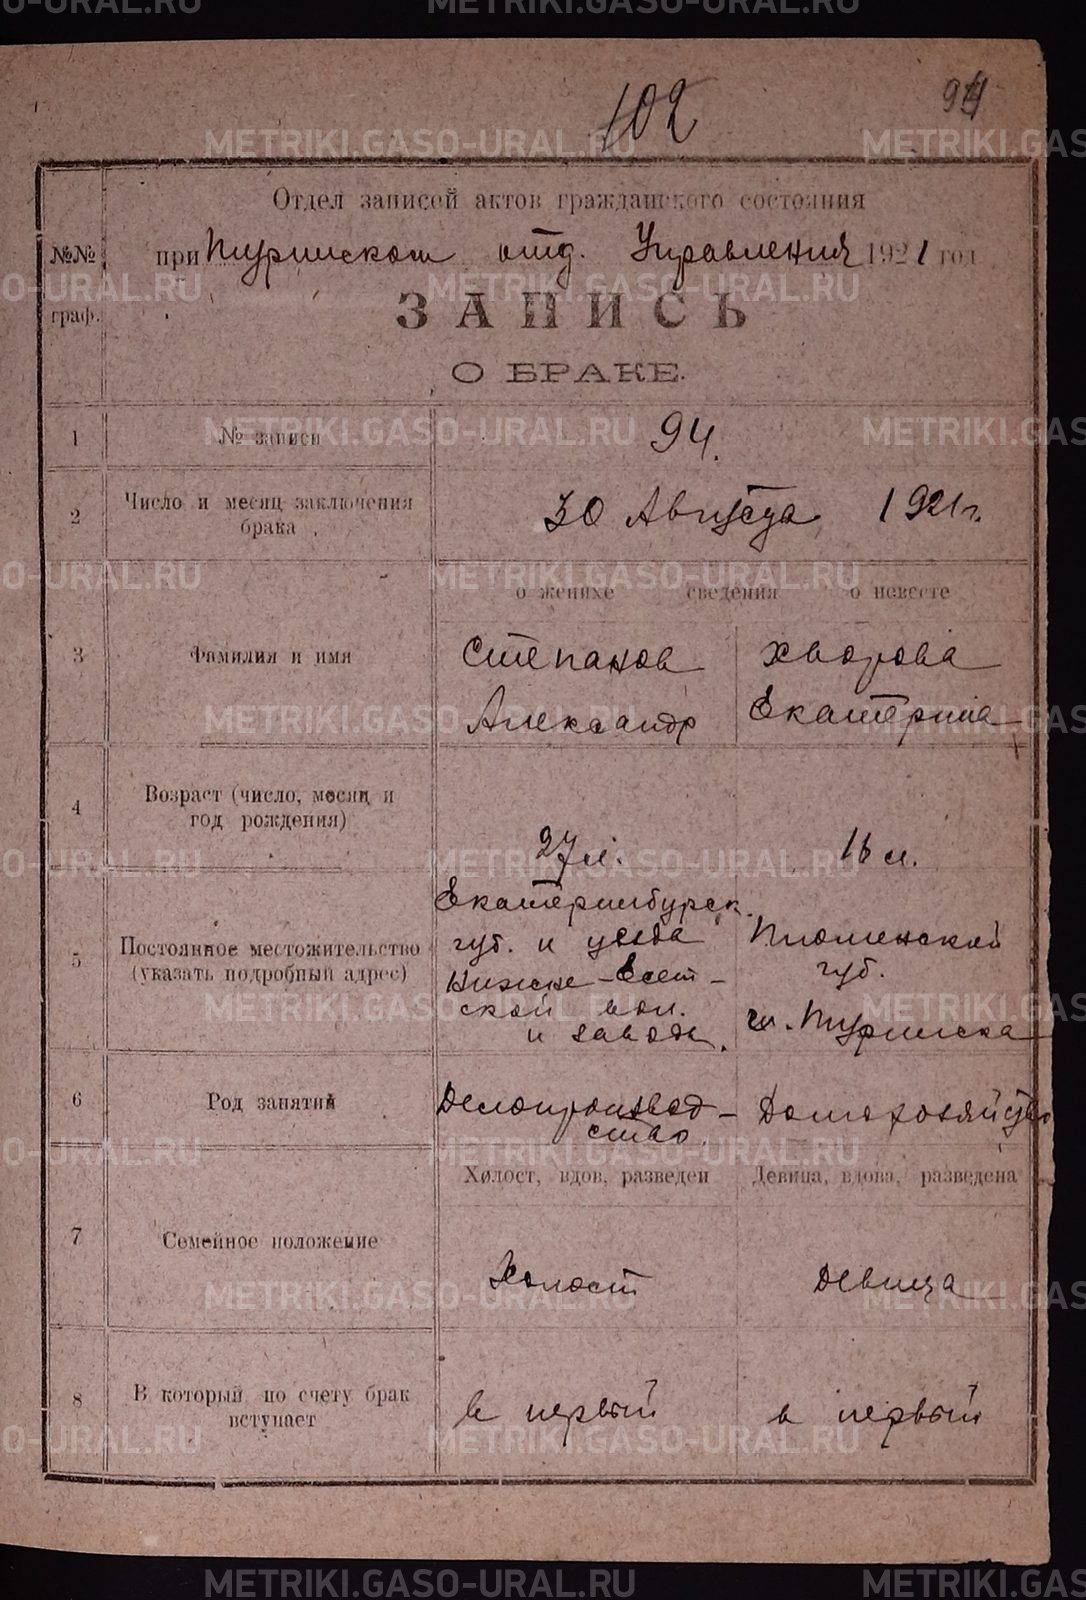 102
94
Отдел записей актов гражданского состояния
№№ граф.
при Туринском отд. Управления 1921 год
ЗАПИСЬ
О БРАКЕ.
1 № записи 94.
2 Число и месяц заключения брака 30 Августа 1921 г.
о женихе сведения о невесте
3 Фамилия и имя
Степанов Хворова
Александр Екатерина
4 Возраст (число, месяц и год рождения)
27 л. 16 л.
5 Постоянное местожительство (указать подробный адрес)
Екатеринбургск.
губ. и уезда
Нижне-Исет-
ской вол.
и завода.
Тюменской
губ.
г. Туринска
6 Род занятий
Делопроизвод-
ство.
Домохозяйство
Холост, вдов, разведен Девица, вдова, разведена
7 Семейное положение
Холост девица
8 В который по счету брак вступает
в первый в первый
METRIKI.GASO-URAL.RU